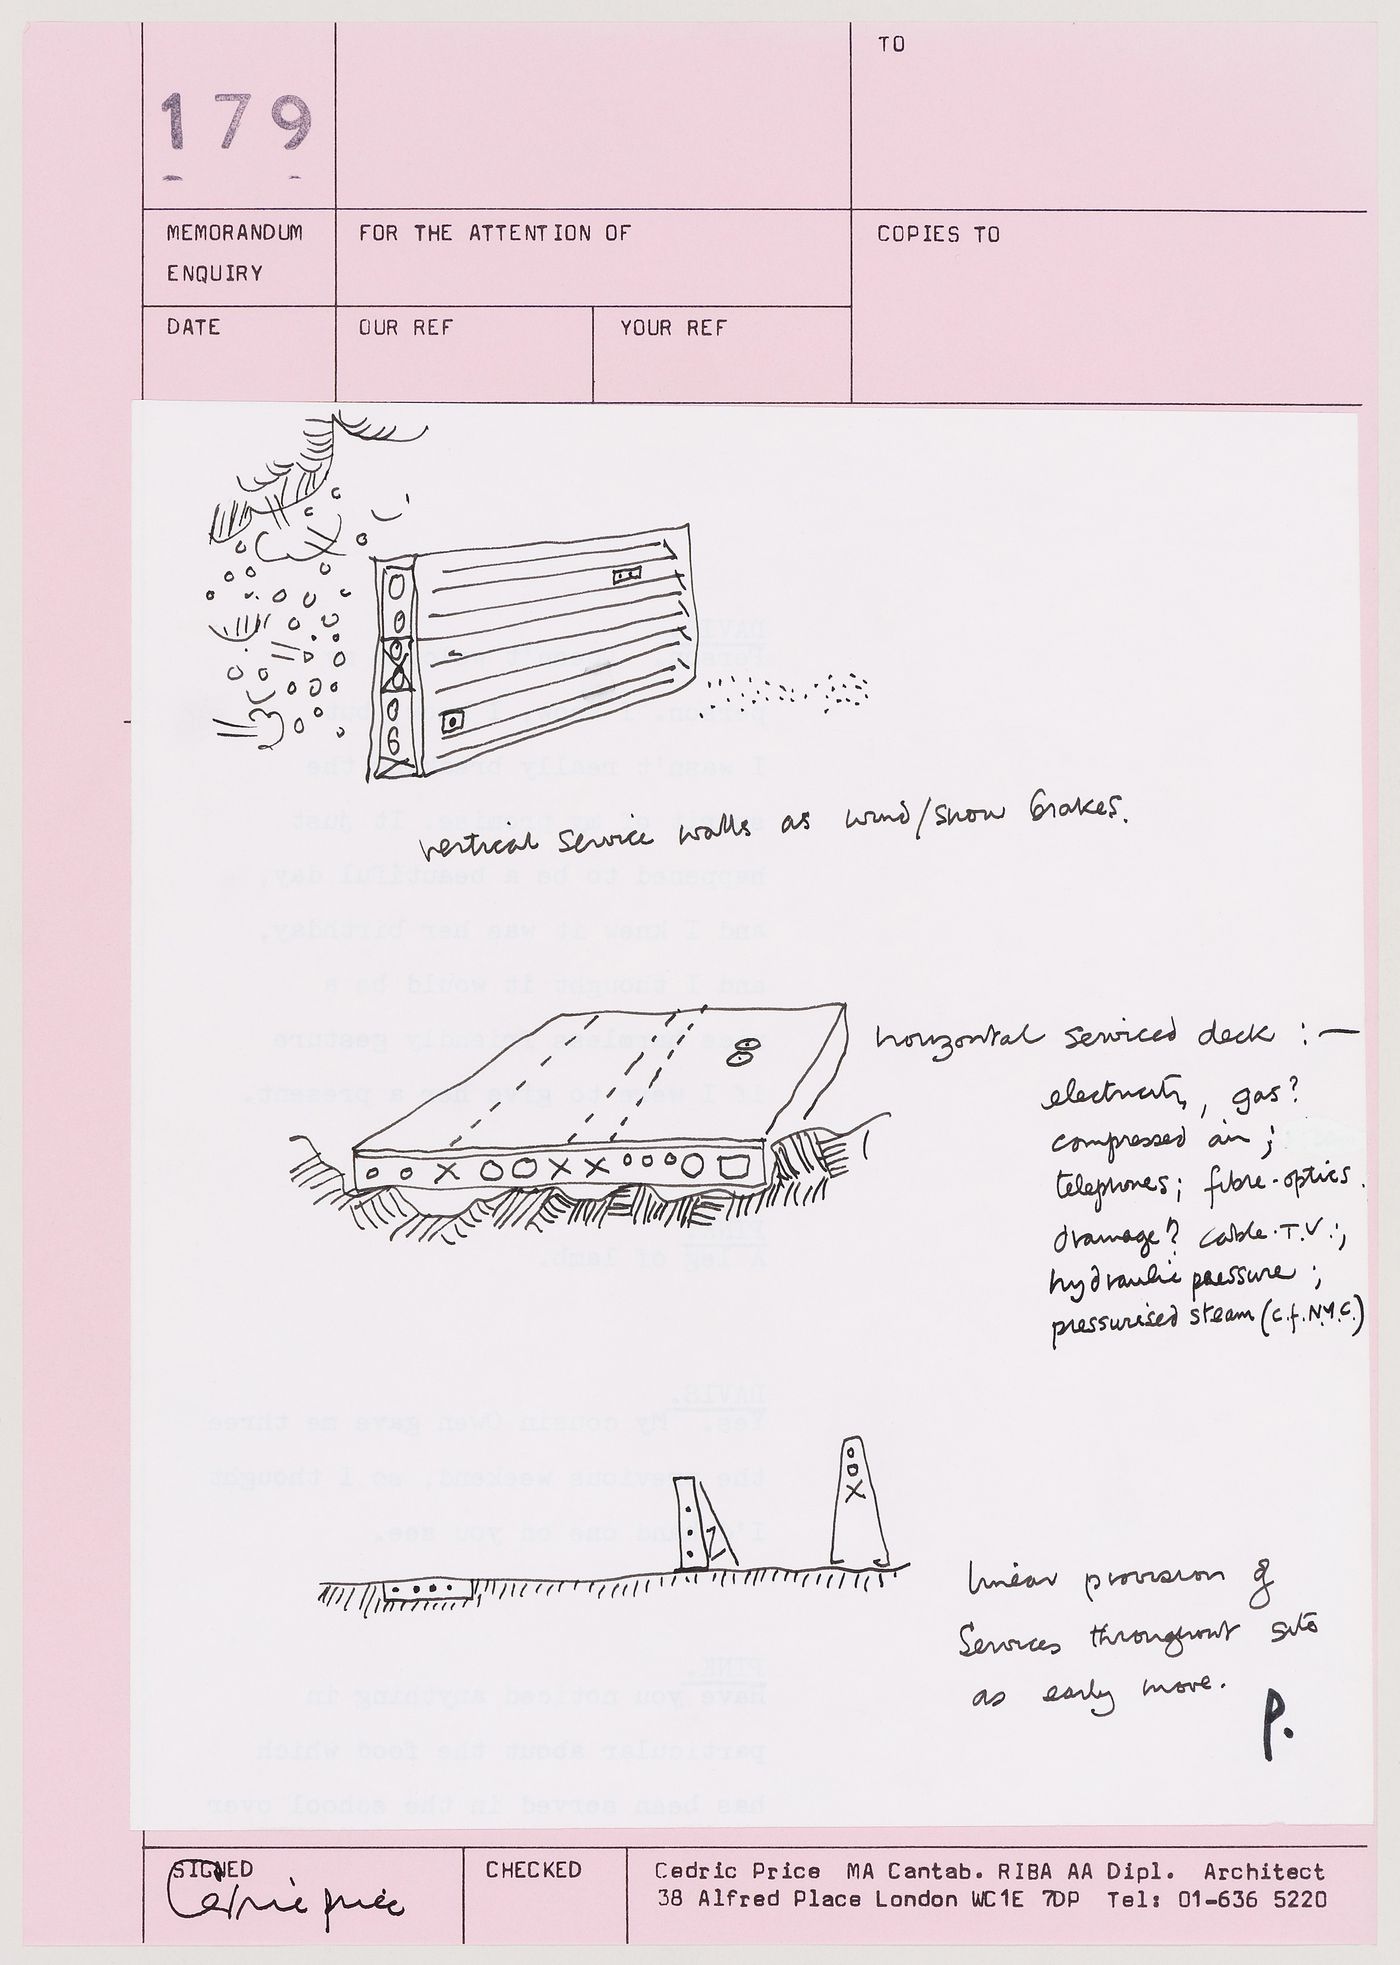 TO
179
MEMORANDUM
ENQUIRY
FOR THE ATTENTION OF
COPIES TO
DATE
OUR REF
YOUR REF
vertical service walls as wind/snow brakes.
horizontal serviced deck :—
electricity, gas?
compressed air;
telephones; fibre-optics.
drainage? cable.T.V.;
hydraulic pressure;
pressurised steam (c.f. N.Y.C.)
linear provision of
Services throughout site
as early move.
P.
SIGNED
Cedric Price
CHECKED
Cedric Price MA Cantab. RIBA AA Dipl. Architect
38 Alfred Place London WC1E 7DP Tel: 01-636 5220